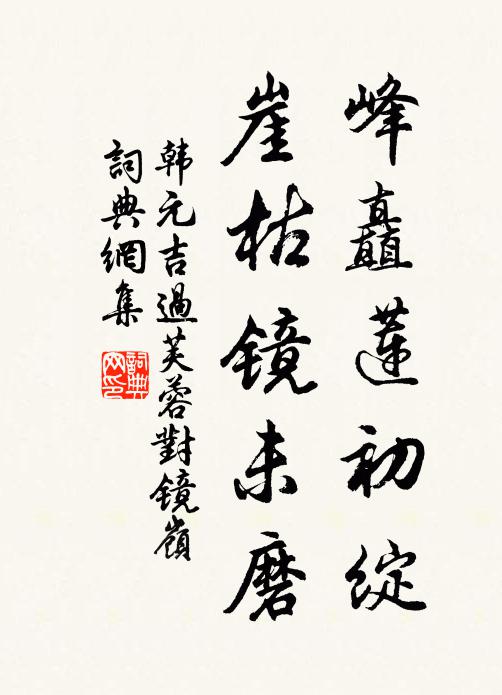 峰矗蓮初綻
崖枯镜未磨
韩元吉過芙蓉對镜嶺
詞典網集
詞典
网印